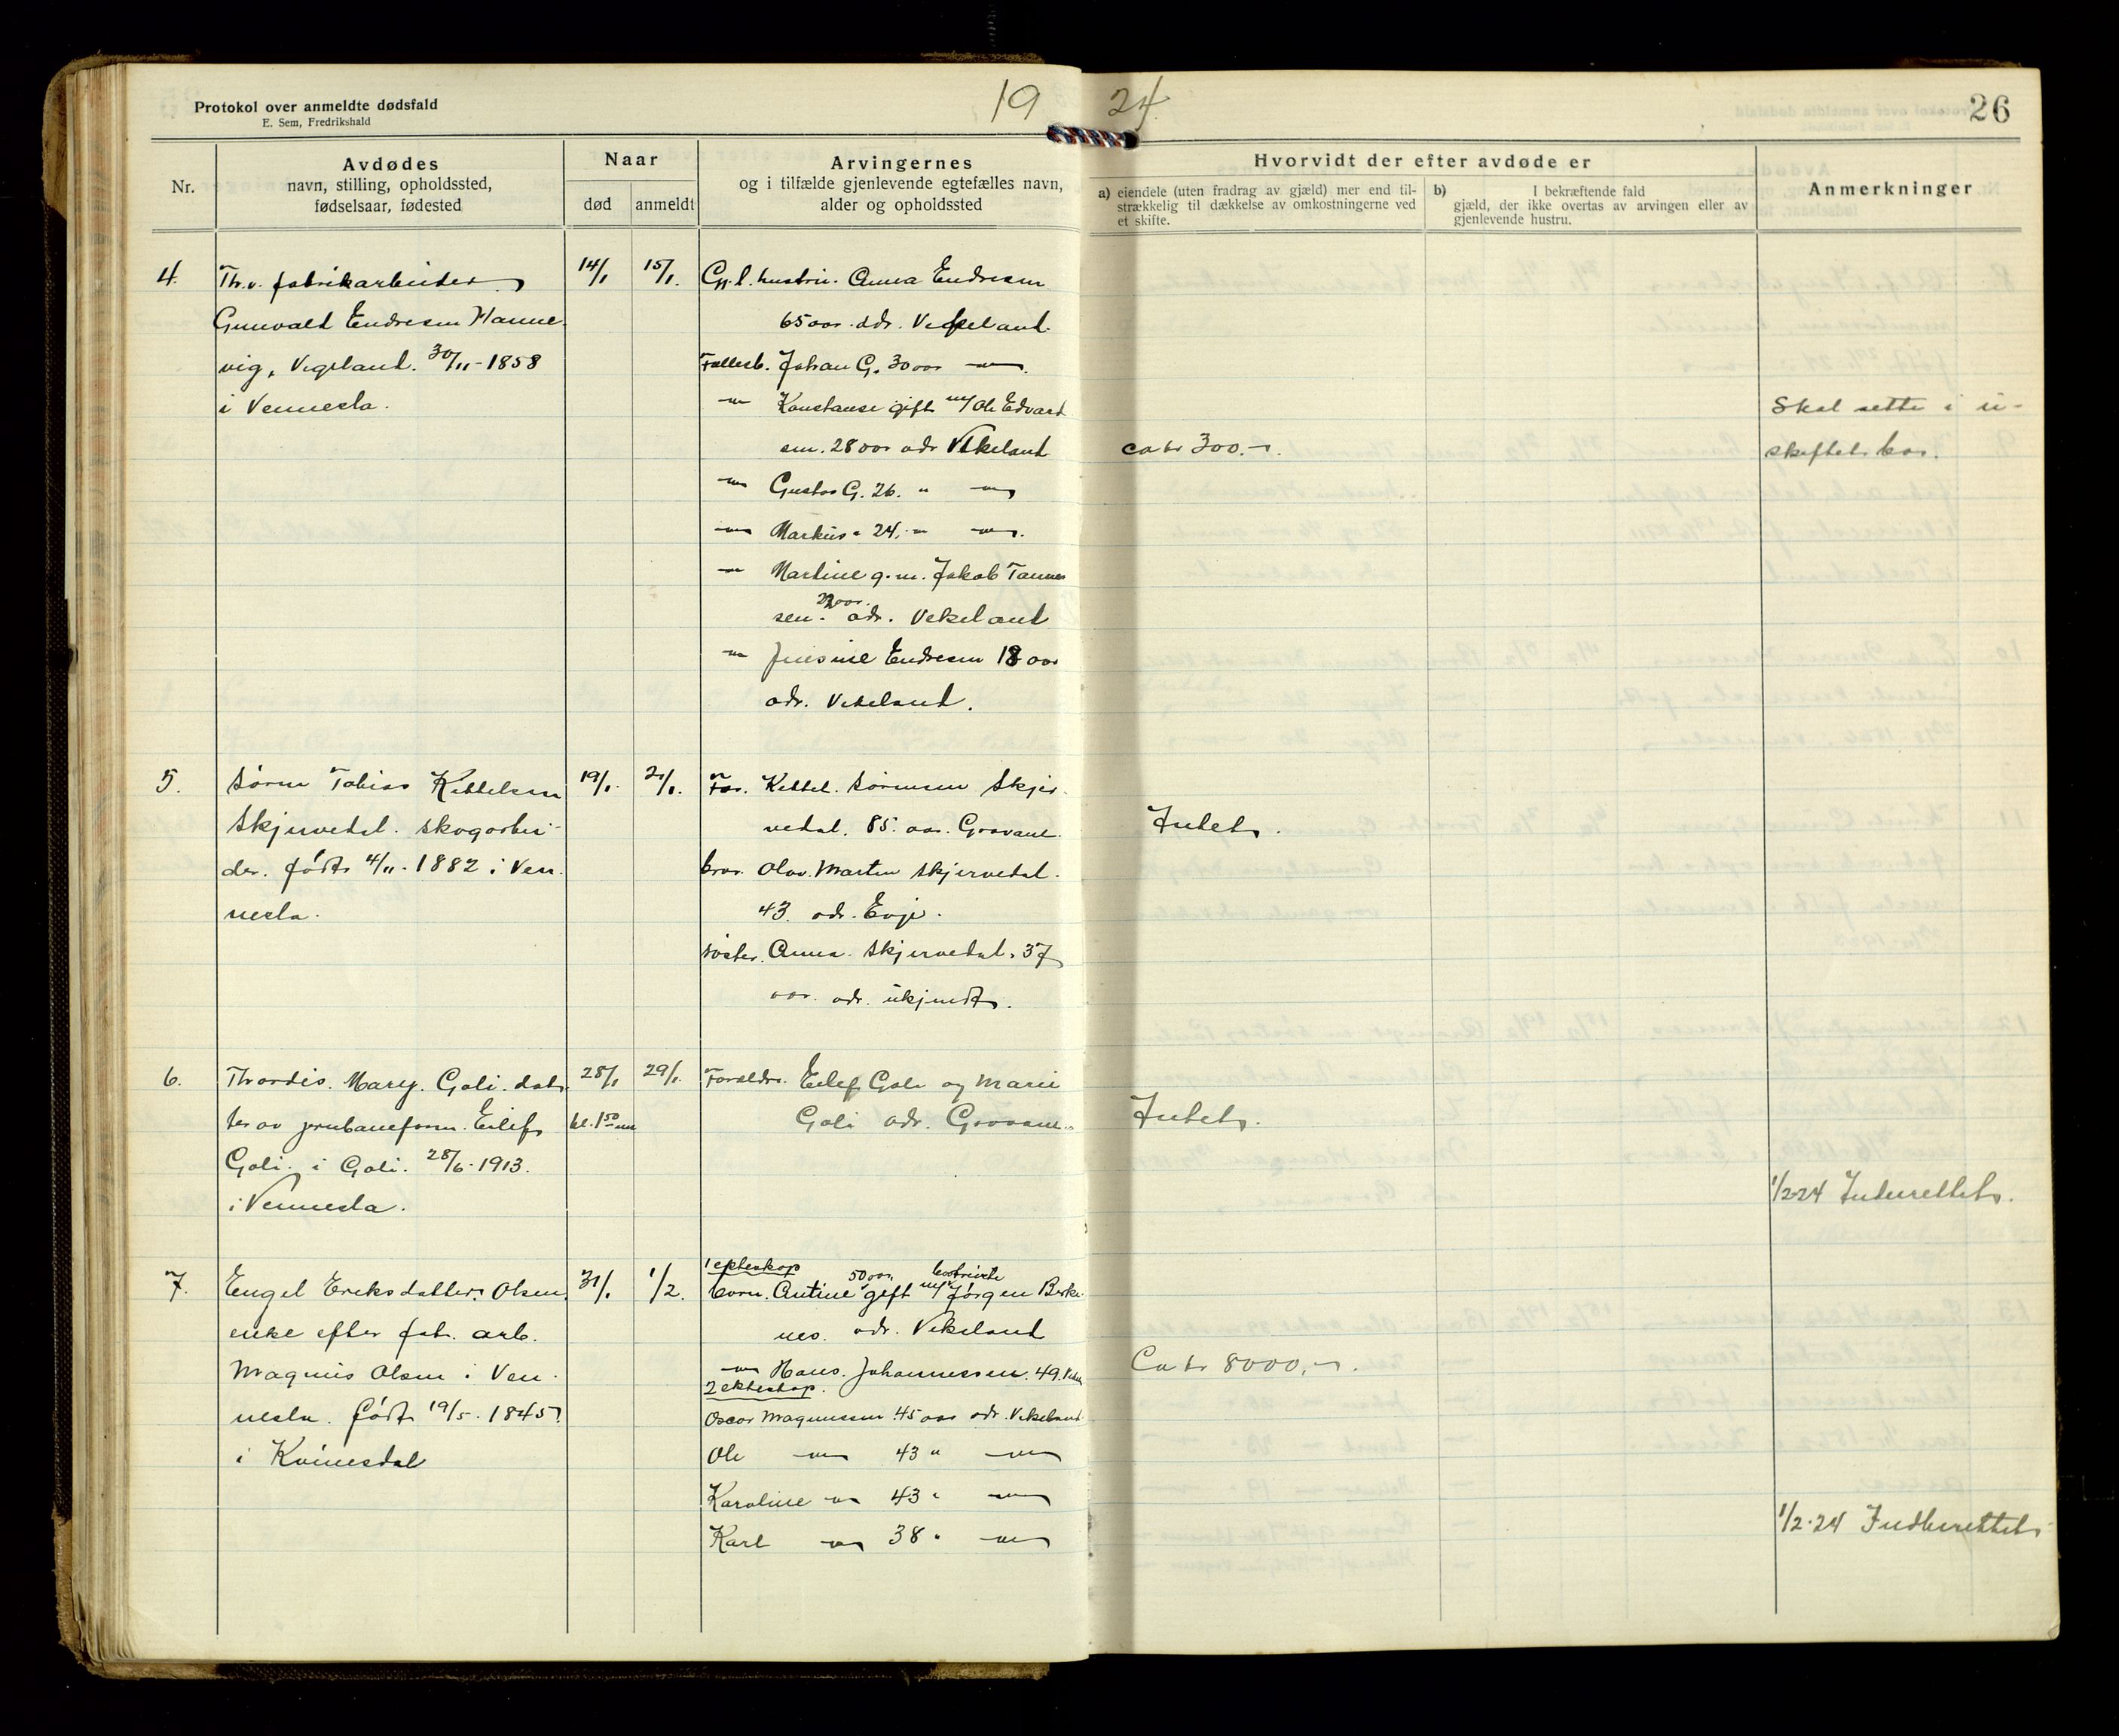 Protokol over anmeldte dødsfald
E. Sem, Fredrikshald
19 24.
26
Nr.
Avdødes
navn, stilling, opholdssted,
fødselsaar, fødested
Naar
død
anmeldt
Arvingernes
og i tilfælde gjenlevende egtefælles navn,
alder og opholdssted
Hvorvidt der efter avdøde er
a) eiendele (uten fradrag av gjæld) mer end til-
strækkelig til dækkelse av omkostningerne ved
et skifte.
b) I bekræftende fald
gjæld, der ikke overtas av arvingen eller av
gjenlevende hustru.
Anmerkninger
4.
Fh.v. fabrikarbeider
Gunvald Endresen Hanne
vig, Vigeland. 30/11-1858
i Vennesla.
14/1
15/1.
Gj. l. hustru. Anna Endresen
65 aar. adr. Vikeland.
Fællesb. Johan G. 30 aar —"—.
—"— Konstanse gift m/ Ole Edvard
sen. 28 aar adr Vikeland
—"— Gustav G. 26. " —"—
—"— Markus " 24. " —"—.
—"— Martine g.m. Jakob Tønnes
sen. 22 aar. adr. Vikeland
—"— Endresen 18 aar
adr. Vikeland.
ca kr 300.-.
Skal sitte i u-
skiftet bo.
5.
Søren Tobias Kittelsen
Skjervedal. skogarbei-
der. født 4/11-1882 i Ven.
nesla.
19/1.
21/1.
Far. Kittel. Sørensen Skjer.
vedal. 85. aar. Grovane.
bror. Olav. Martin Skjervedal.
43. adr. Evje.
søster. Anna. Skjervedal. 37
aar. adr. ukjendt.
Intet.
6.
Thordis. Mary. Goli. dat.
ter av jernbaneform. Eilif
Goli. i Goli. 28/6-1913.
i Vennesla.
28/1
kl. 1 50
29/1.
Forældre. Eilif Goli og Marie
Goli adr. Grovane.
Intet.
1/2-24 Indberettet.
7.
Engel Eriksdatter. Olsen.
enke efter fab. arb.
Magnus Olsen i Ven.
nesla. født 19/5-1845
i Kvinesdal
31/1.
1/2.
1 ekteskap
barn. Antine 50 aar. gift m/ Jørgen Birke.
nes. adr. Vikeland
—"— Hans. Johannessen. 49.
2 ekteskap.
Oscar Magnussen 45 aar adr. Vikeland
Ole —"— 43 " —"—
Karoline —"— 43 " —"—
Karl —"— 38 " —"—
Ca kr 8000,-.
1/2-24 Indberettet